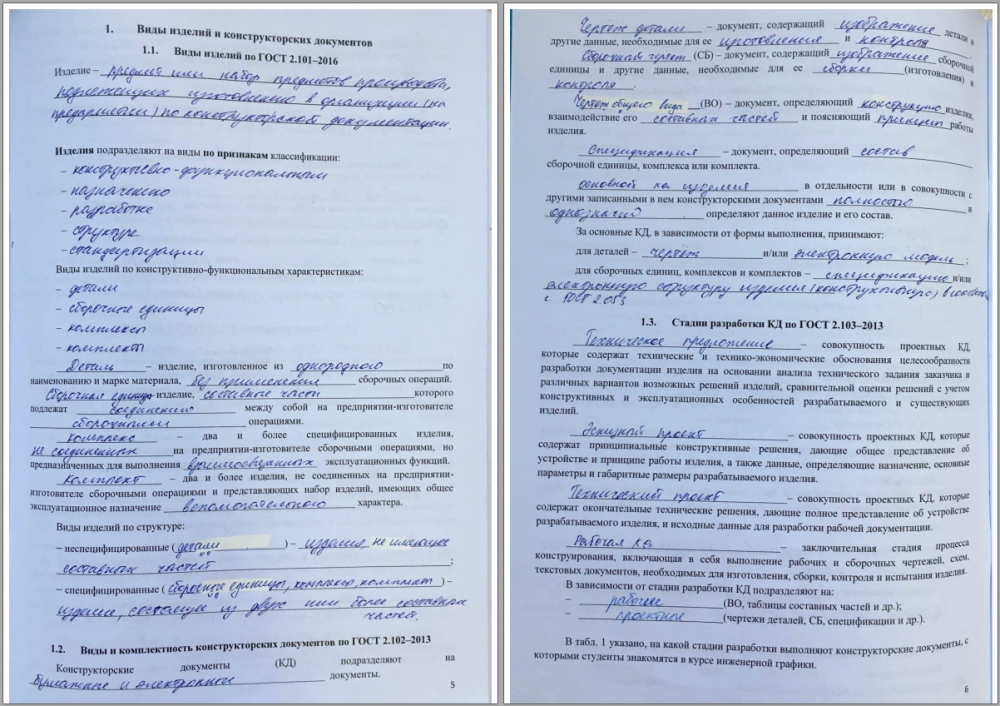 1. Виды изделий и конструкторских документов
1.1. Виды изделий по ГОСТ 2.101–2016
Изделие – предмет или набор предметов производства,
подлежащих изготовлению в организации (на
предприятии) по конструкторской документации.
Изделия подразделяют на виды по признакам классификации:
– конструктивно-функциональным
– назначению
– разработке
– структуре
– стандартизации
Виды изделий по конструктивно-функциональным характеристикам:
– детали
– сборочные единицы
– комплексы
– комплекты
Деталь – изделие, изготовленное из однородного по
наименованию и марке материала, без применения сборочных операций.
Сборочная единица изделие, составные части которого
подлежат соединению между собой на предприятии-изготовителе
сборочными операциями.
Комплекс – два и более специфицированных изделия,
не соединенных на предприятии-изготовителе сборочными операциями, но
предназначенных для выполнения взаимосвязанных эксплуатационных функций.
Комплект – два и более изделия, не соединенных на предприятии-
изготовителе сборочными операциями и представляющих набор изделий, имеющих общее
эксплуатационное назначение вспомогательного характера.
Виды изделий по структуре:
– неспецифицированные (детали) – изделия, не имеющие
составных частей ;
– специфицированные (сборочные единицы, комплексы, комплекты) –
изделие, состоящие из двух или более составных
частей.
1.2. Виды и комплектность конструкторских документов по ГОСТ 2.102–2013
Конструкторские документы (КД) подразделяют на
бумажные и электронные документы.
5
Чертеж детали – документ, содержащий изображение детали и
другие данные, необходимые для ее изготовления и контроля.
Сборочный чертеж (СБ) – документ, содержащий изображение сборочной
единицы и другие данные, необходимые для ее сборки (изготовления) и
контроля.
Чертеж общего вида (ВО) – документ, определяющий конструкцию изделия,
взаимодействие его составных частей и поясняющий принцип работы
изделия.
Спецификация – документ, определяющий состав
сборочной единицы, комплекса или комплекта.
основной кд изделия в отдельности или в совокупности с
другими записанными в нем конструкторскими документами полностью и
однозначно определяют данное изделие и его состав.
За основные КД, в зависимости от формы выполнения, принимают:
для деталей – чертеж и/или электронную модель ;
для сборочных единиц, комплексов и комплектов – спецификацию и/или
электронную структуру изделия (конструктивную) в
с ГОСТ 2.053
1.3. Стадии разработки КД по ГОСТ 2.103–2013
Техническое предложение – совокупность проектных КД,
которые содержат технические и технико-экономические обоснования целесообразности
разработки документации изделия на основании анализа технического задания заказчика и
различных вариантов возможных решений изделий, сравнительной оценки решений с учетом
конструктивных и эксплуатационных особенностей разрабатываемого и существующих
изделий.
Эскизный проект – совокупность проектных КД, которые
содержат принципиальные конструктивные решения, дающие общее представление об
устройстве и принципе работы изделия, а также данные, определяющие назначение, основные
параметры и габаритные размеры разрабатываемого изделия.
Технический проект – совокупность проектных КД, которые
содержат окончательные технические решения, дающие полное представление об устройстве
разрабатываемого изделия, и исходные данные для разработки рабочей документации.
Рабочая КД – заключительная стадия процесса
конструирования, включающая в себя выполнение рабочих и сборочных чертежей, схем,
текстовых документов, необходимых для изготовления, сборки, контроля и испытания изделия.
В зависимости от стадии разработки КД подразделяют на:
– рабочие (ВО, таблицы составных частей и др.);
– проектные (чертежи деталей, СБ, спецификации и др.).
В табл. 1 указано, на какой стадии разработки выполняют конструкторские документы, с
которыми студенты знакомятся в курсе инженерной графики.
6